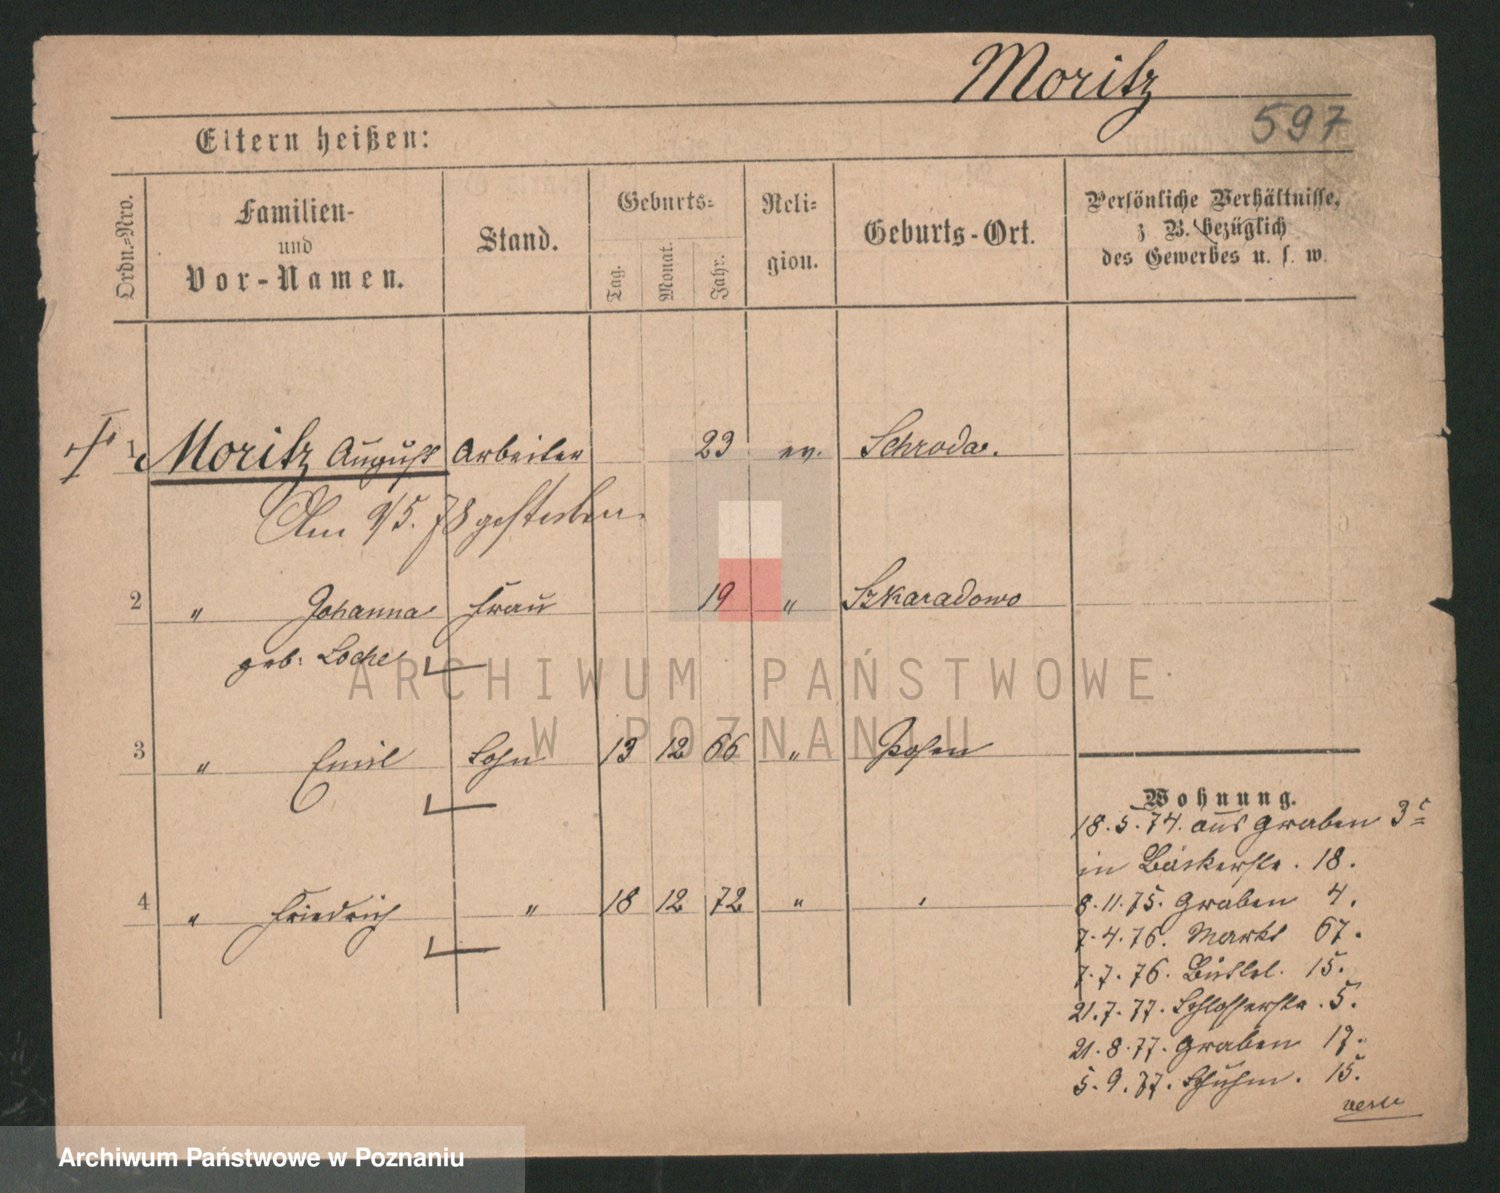 Moritz
597
Eltern heißen:
Ordn.=Nro.
Familien-
und
Vor-Namen.
Stand.
Geburts=
Tag.
Monat.
Jahr.
Reli=
gion.
Geburts-Ort.
Persönliche Verhältnisse,
z. B. bezüglich
des Gewerbes u. s. w.
1 Moritz August Arbeiter 23 ev. Schroda.
Am 9/5. 78 gestorben.
2 " Johanna Frau 19 " Szkaradowo
geb: Loche
3 " Emil Sohn 13 12 66 " Posen
4 " Friedrich " 18 12 72 " "
Wohnung.
18.5.74. aus Graben 3c
in Bäckerstr. 18.
8.11.75. Graben 4.
7.4.76. Markt 67.
7.7.76. Büttel. 15.
21.7.77. Schlosserstr. 5.
21.8.77. Graben 17.
5.9.77. Schuhm. 15.
ARCHIWUM PAŃSTWOWE
W POZNANIU
Archiwum Państwowe w Poznaniu